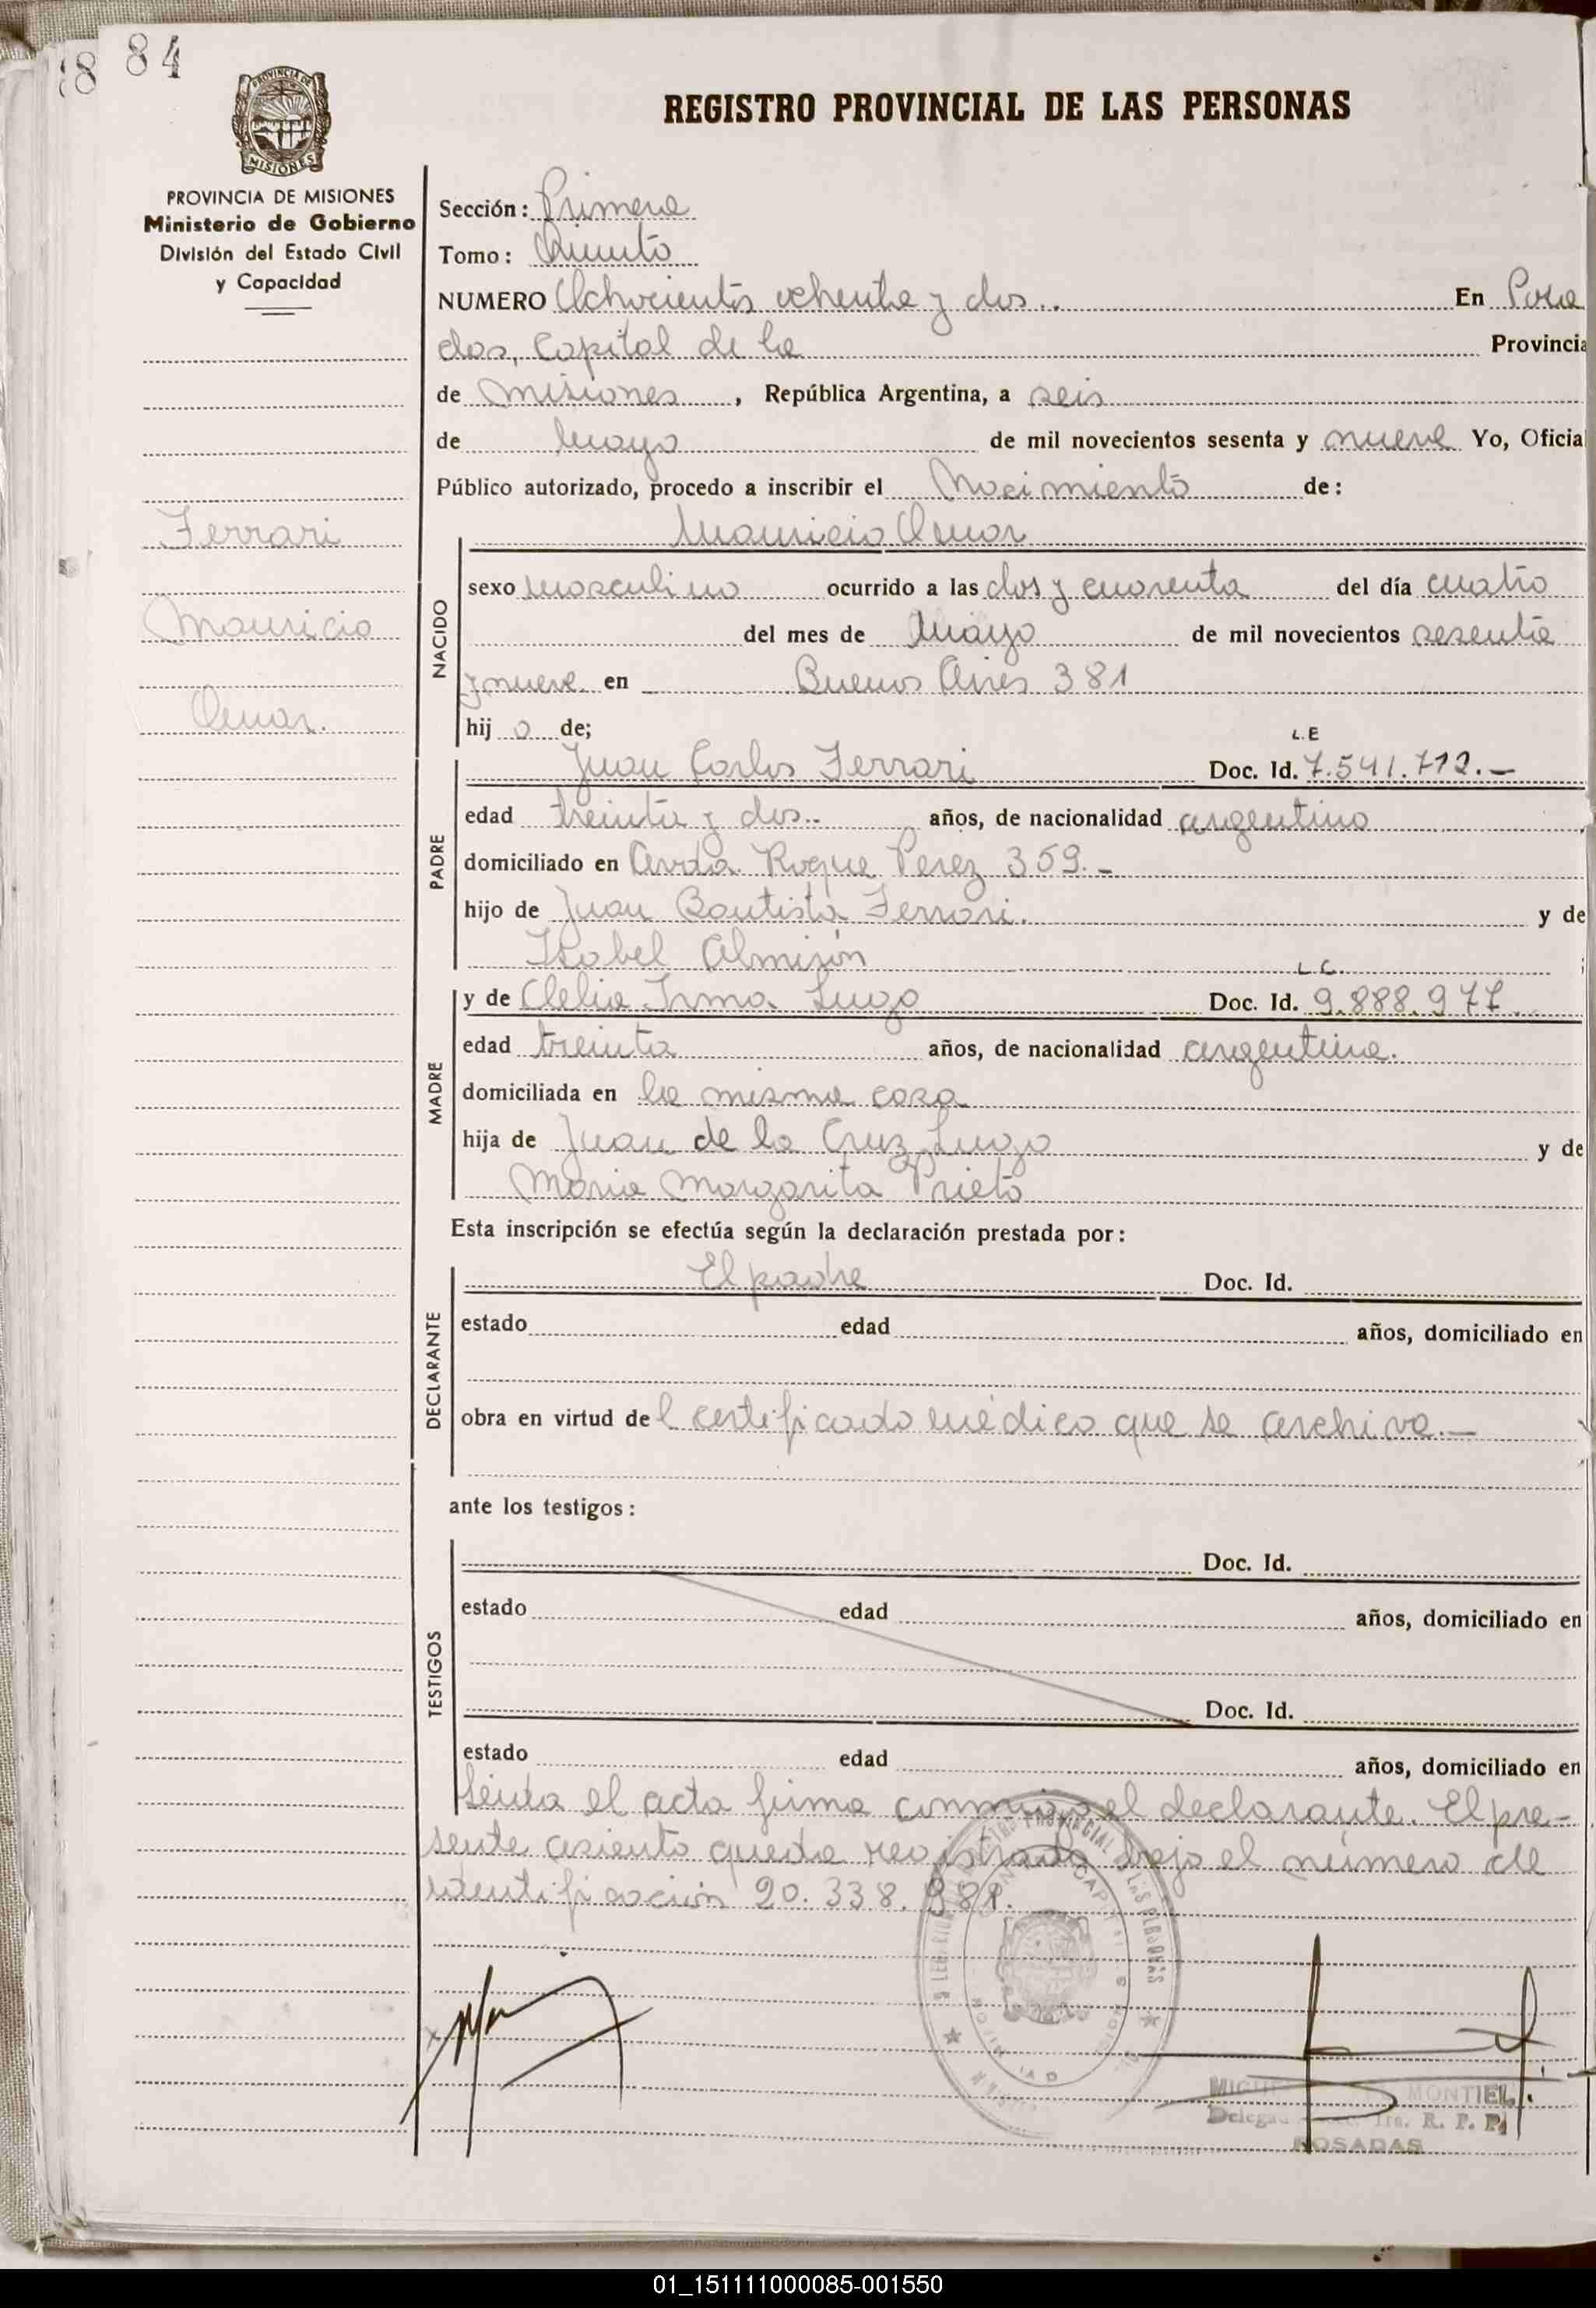 84
8
PROVINCIA DE
MISIONES
REGISTRO PROVINCIAL DE LAS PERSONAS
PROVINCIA DE MISIONES
Ministerio de Gobierno
División del Estado Civil
y Capacidad
Sección: Primera
Tomo: Quinto
NUMERO Ochocientos ochenta y dos.. En Posa
das, Capital de la Provincia
de Misiones, República Argentina, a seis
de Mayo de mil novecientos sesenta y nueve Yo, Oficia
Público autorizado, procedo a inscribir el Nacimiento de:
Ferrari
Mauricio
Omar.
Mauricio Omar
NACIDO
sexo masculino ocurrido a las dos y cuarenta del día cuatro
del mes de Mayo de mil novecientos sesenta
y nueve en Buenos Aires 381
hijo de;
L.E
PADRE
Juan Carlos Ferrari Doc. Id. 7.541.712.-
edad treinta y dos.. años, de nacionalidad argentino
domiciliado en Avda. Roque Perez 359.-
hijo de Juan Bautista Ferrari. y de
Isabel Almirón
L.C.
MADRE
y de Clelia Irma Lugo Doc. Id. 9.888.977.
edad treinta años, de nacionalidad argentina.
domiciliada en la misma casa
hija de Juan de la Cruz Lugo y de
Maria Margarita Prieto
Esta inscripción se efectúa según la declaración prestada por:
DECLARANTE
El padre Doc. Id.
estado edad años, domiciliado en
obra en virtud del certificado médico que se archiva.-
ante los testigos:
TESTIGOS
Doc. Id.
estado edad años, domiciliado en
Doc. Id.
estado edad años, domiciliado en
Leida el acta firma conmigo el declarante. El pre-
sente asiento queda registrado bajo el número de
identificación 20.338.
MONTIEL
R. P. P.
POSADAS
01_151111000085-001550